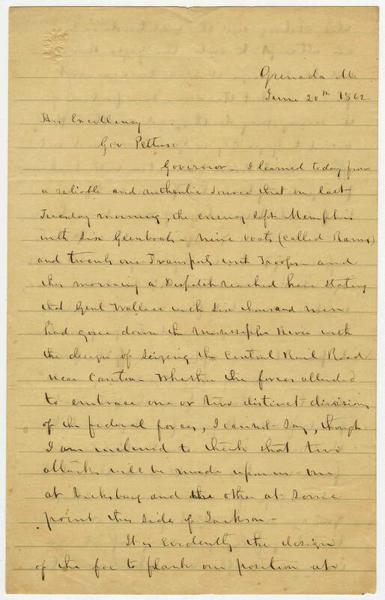 Grenada Mi
June 20th 1862
His Excellency
Gov Pettus
Governor - I learned today from
a reliable and authentic source that on last
Tuesday morning, the enemy left Memphis
with six Gunboats - nine boats (called Rams)
and twenty one Transports with Troops and
this morning a Dispatch reached here stating
that Genl Wallace with six thousand men
had gone down the Mississippi River with
the design of seizing the Central Rail Road
near Canton - Whether the forces alluded
to embrace one or two distinct divisions
of the federal forces, I cannot say, though
I am inclined to think that two
attacks will be made upon us one
at Vicksburg and the other at some
point this side of Jackson -
It is evidently the design
of the foe to flank our position at